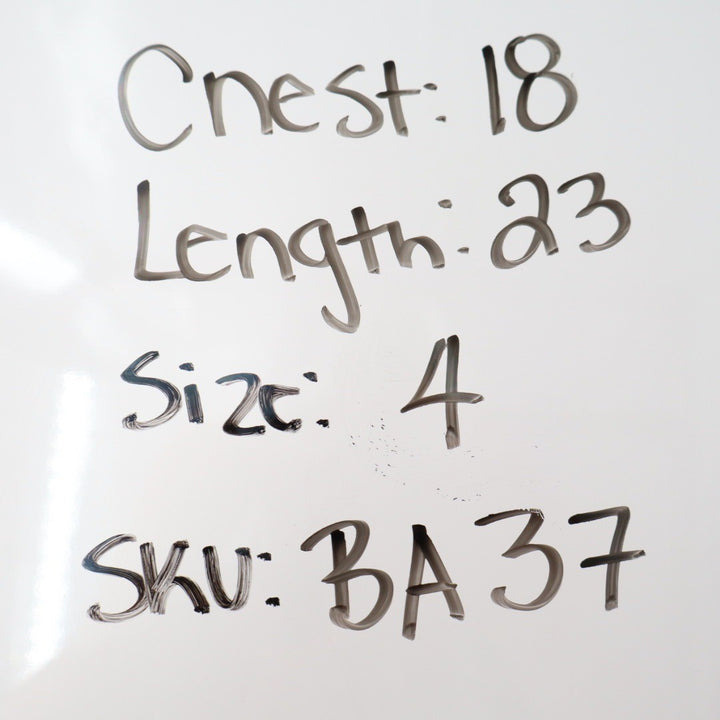 Chest: 18
Length: 23
Size: 4
SKU: BA37